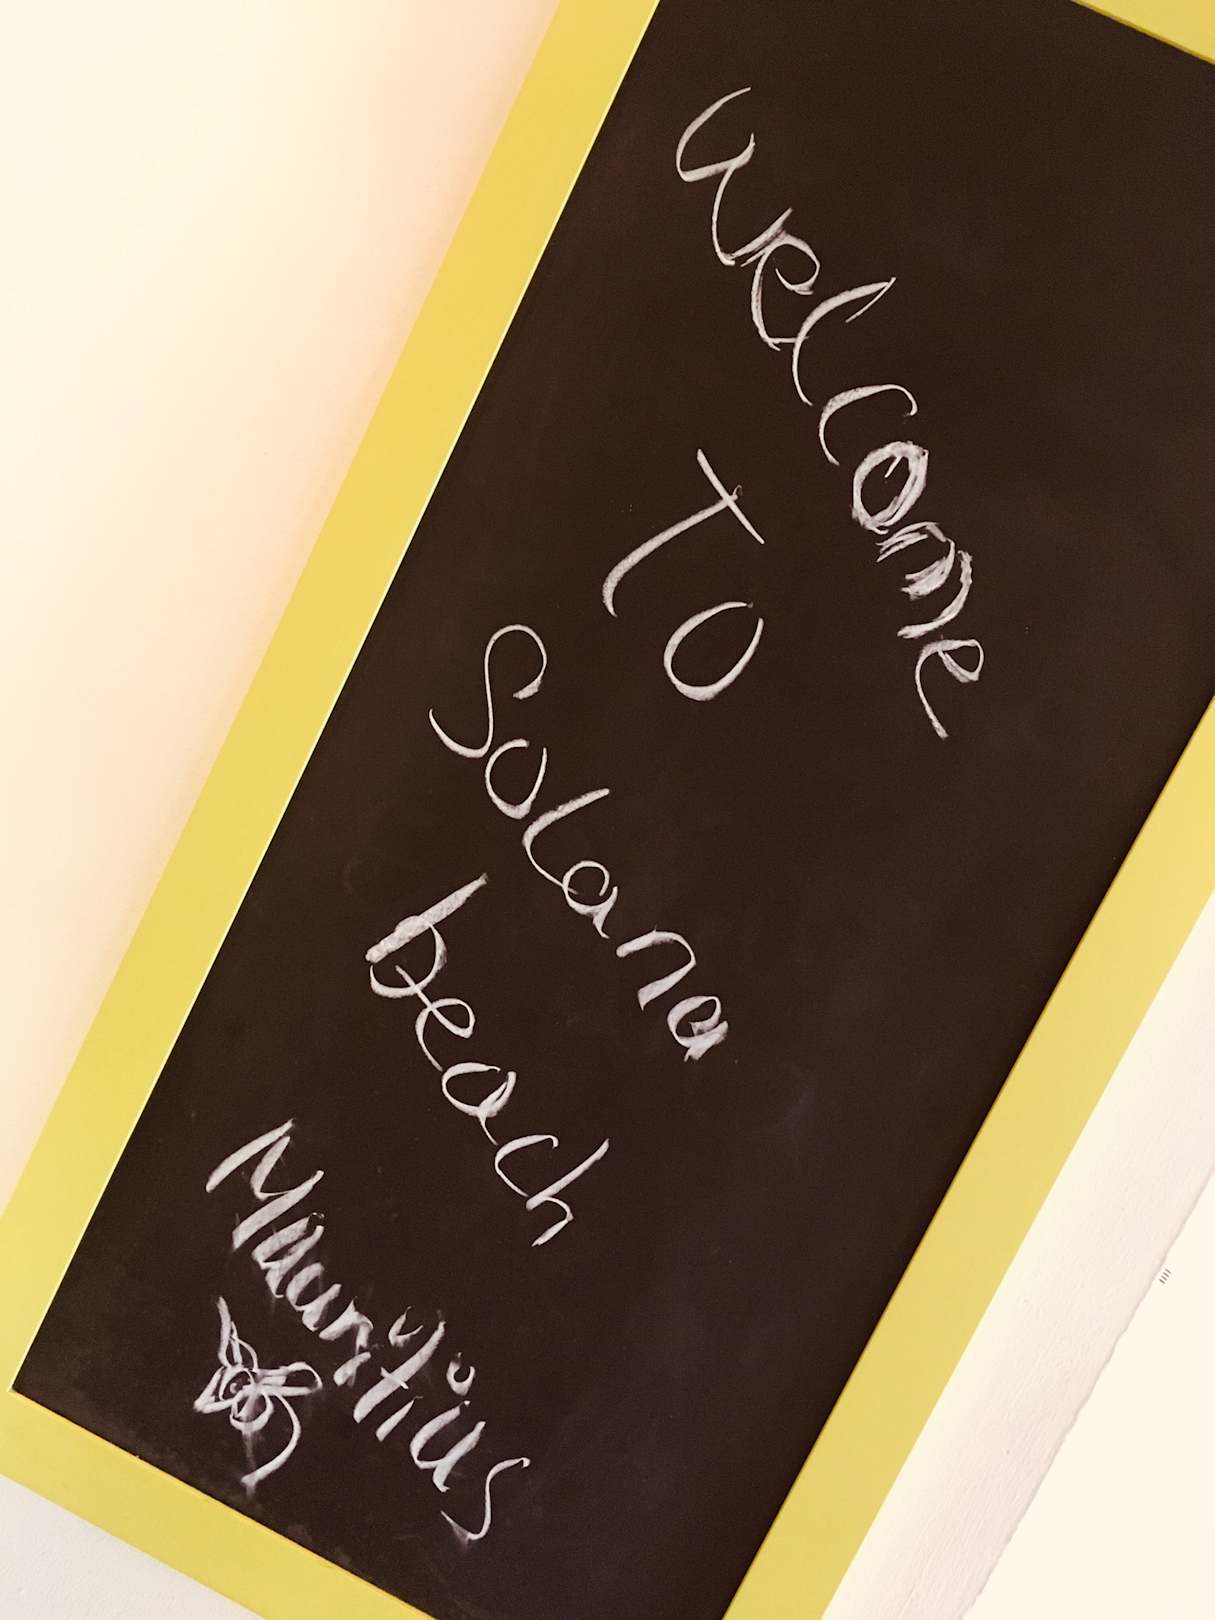 Welcome
To
Solana
beach
Mauritius